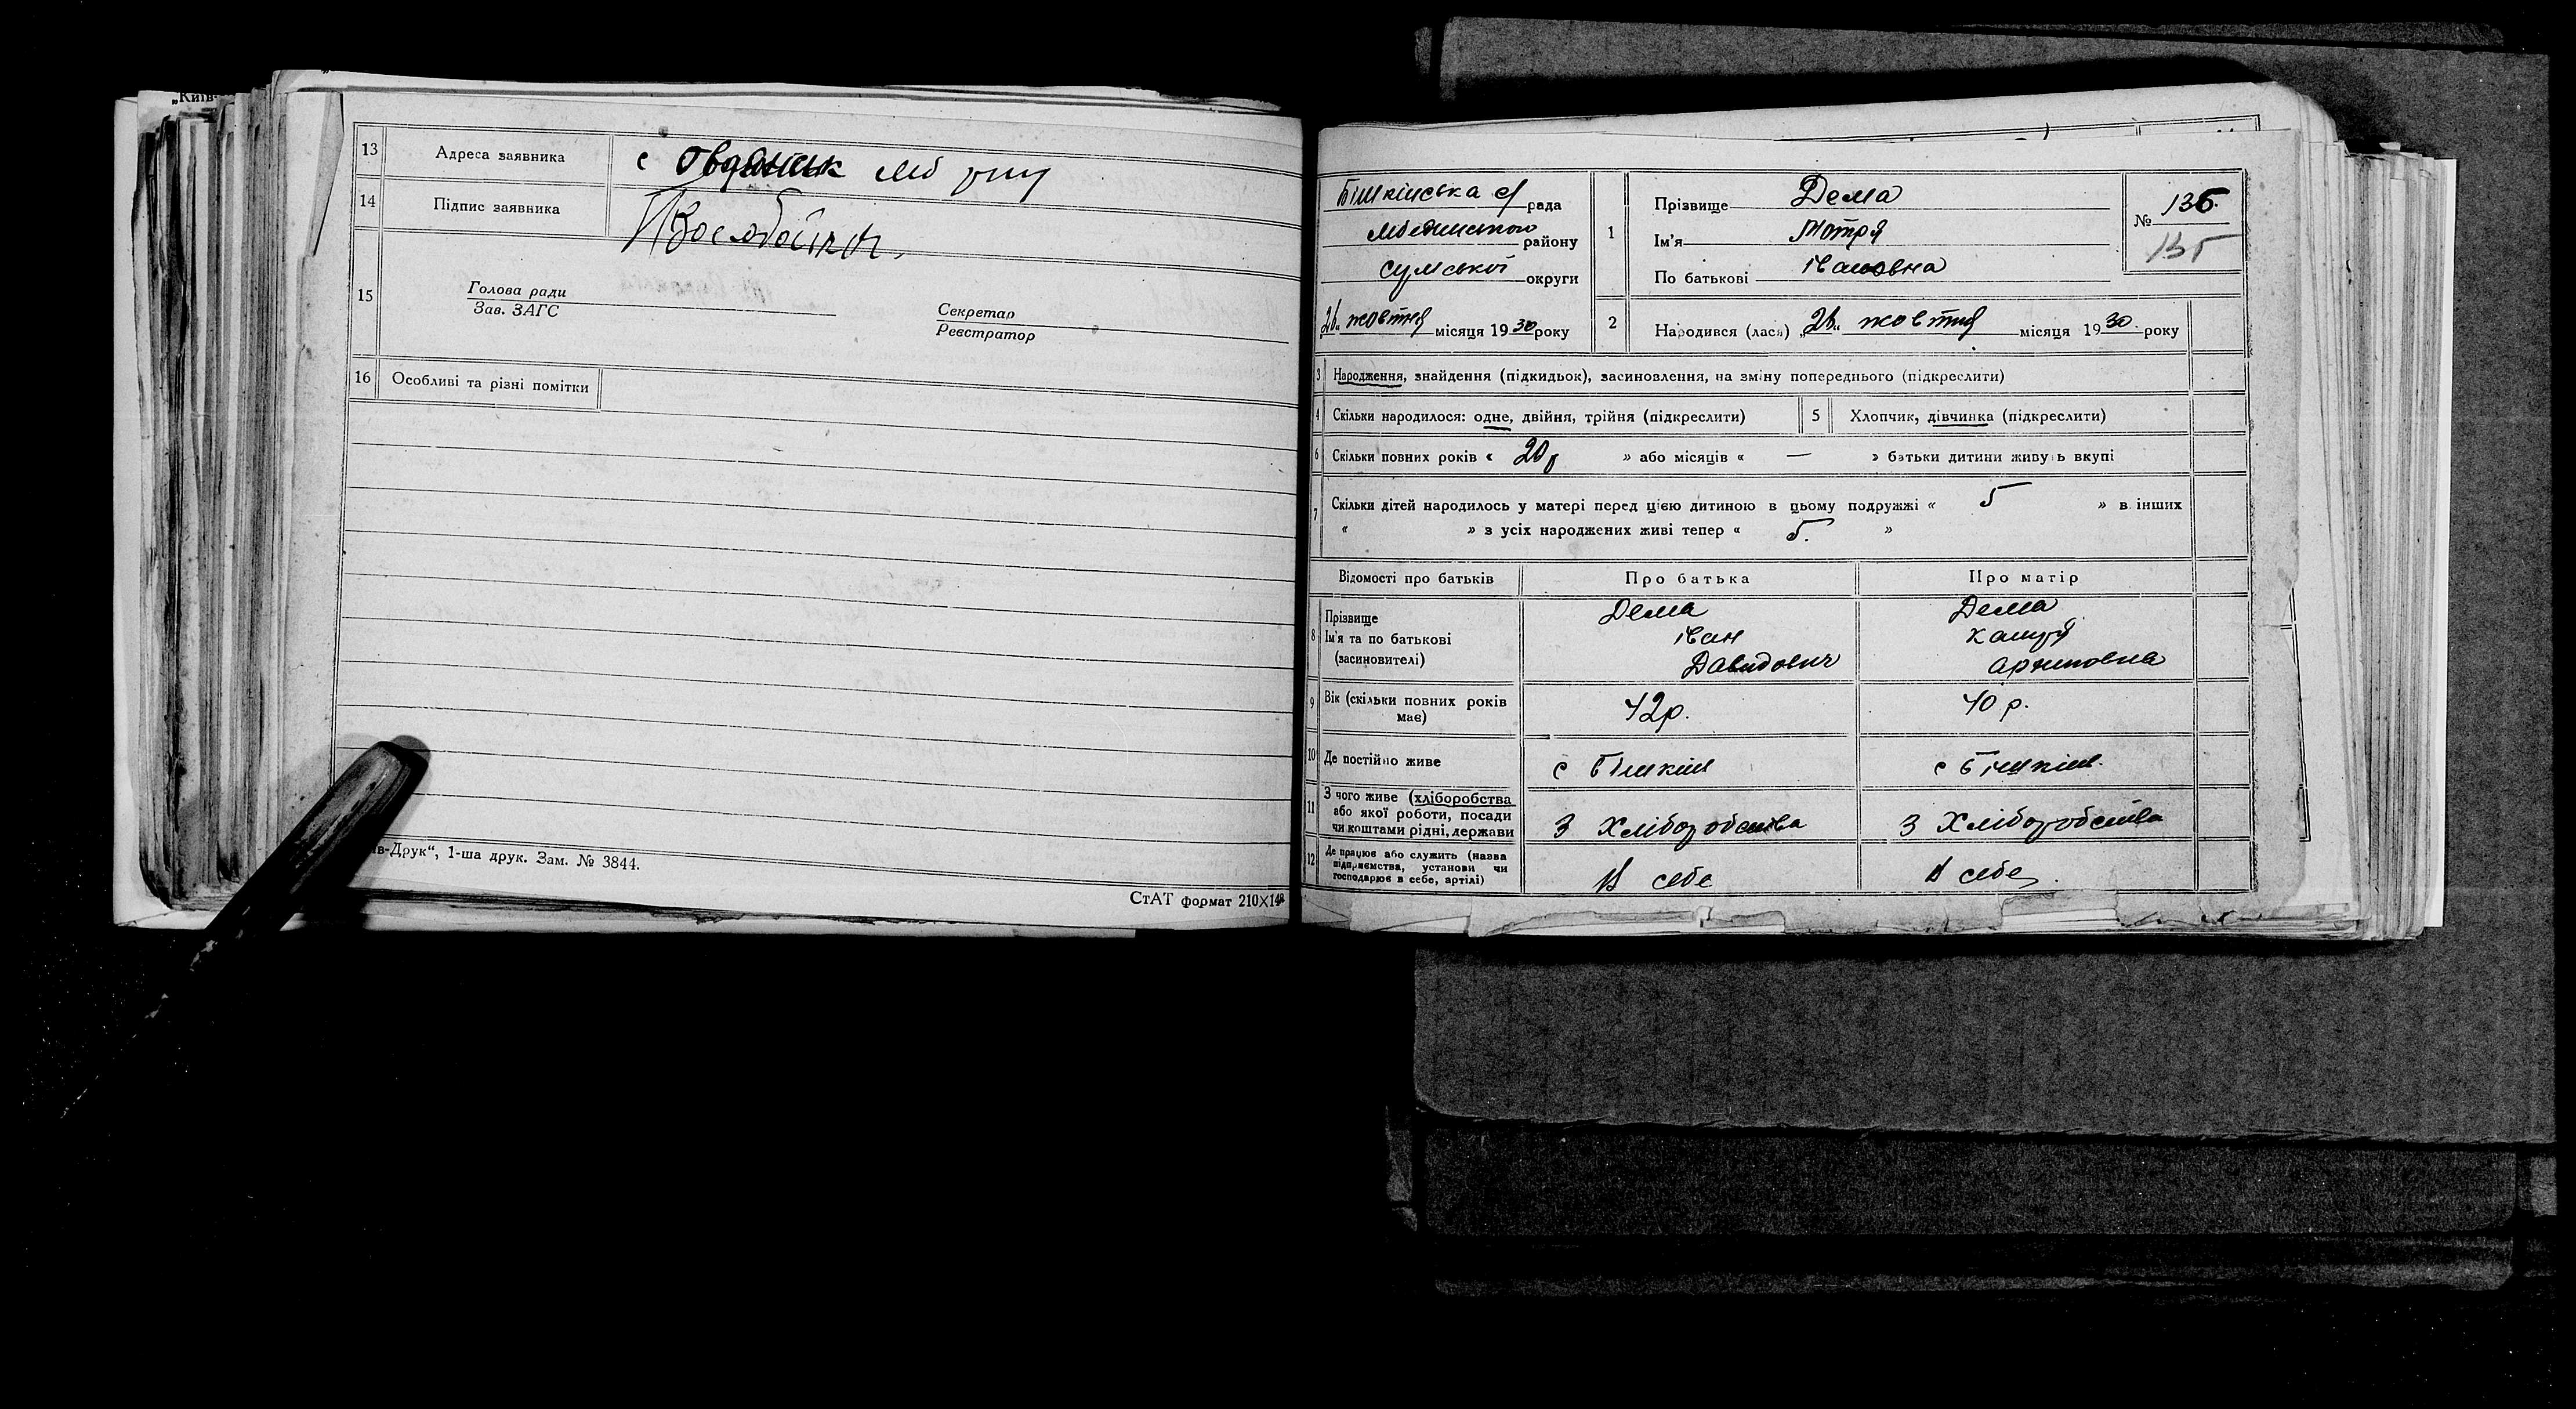 „Київ-
13 Адреса заявника с
14 Підпис заявника
15 Голова ради
Зав. ЗАГС
Секретар
Реєстратор
16 Особливі та різні помітки
в-Друк“, 1-ша друк. Зам. № 3844.
СтАТ формат 210×148
Бішкінська с/рада
району
Сумської округи
„26„ жовтня місяця 1930 року
1 Прізвище Дема
Ім'я Мотря
По батькові Івановна
№ 136.
135
2 Народився (лася) „26„ жовтня місяця 1930. року
3 Народження, знайдення (підкидьок), засиновлення, на зміну попереднього (підкреслити)
4 Скільки народилося: одне, двійня, трійня (підкреслити)
5 Хлопчик, дівчинка (підкреслити)
6 Скільки повних років « 20 р » або місяців « — » батьки дитини живуть вкупі
7 Скільки дітей народилось у матері перед цією дитиною в цьому подружжі « 5 » в інших
« » з усіх народжених живі тепер « 5. »
Відомості про батьків Про батька Про матір
8 Прізвище Дема Дема
Ім'я та по батькові Іван
(засиновителі) Давидович Архиповна
9 Вік (скільки повних років має) 42р. 40 р.
10 Де постійно живе с Бішкінь с Бішкінь.
11 З чого живе (хліборобства
або якої роботи, посади
чи коштами рідні, держави
З Хліборобства З Хліборобства
12 Де працює або служить (назва
підприємства, установи чи
господарює в себе, артілі)
В себе В себе.